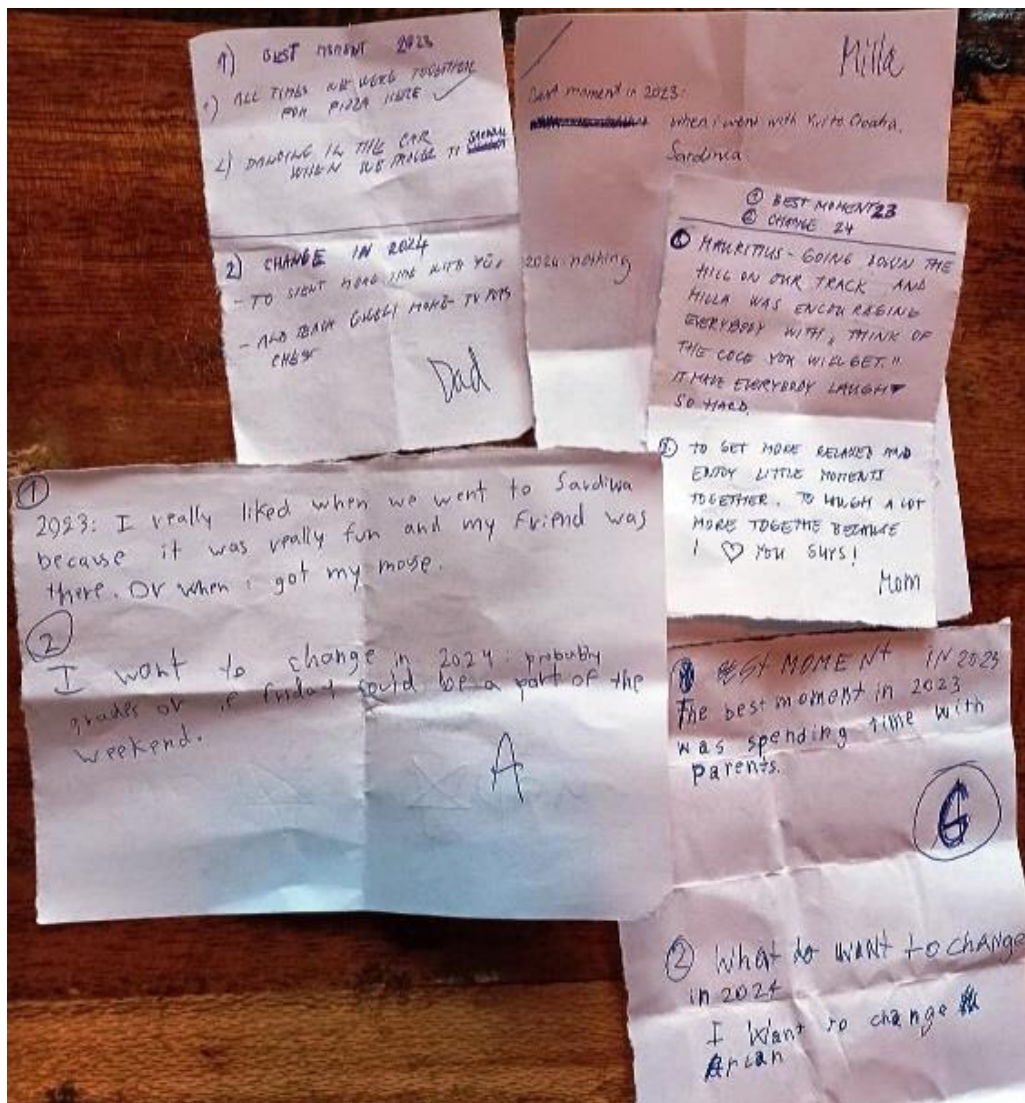 1) BEST MOMENT 2023
1) ALL TIMES WE WERE TOGETHER
FOR PIZZA HERE
2) DANCING IN THE CAR
WHEN WE TO
2) CHANGE IN 2024
- TO SPENT MORE TIME WITH YOU
- AND TEACH MORE
CHESS
Dad
Milla
Best moment in 2023:
when i went with to Croatia,
Sardinia
2024: nothing
① BEST MOMENT 23
② CHANGE 24
① MAURITIUS - GOING DOWN THE
HILL ON OUR TRACK AND
MILLA WAS ENCOURAGING
EVERYBODY WITH „THINK OF
THE COCE YOU WILL GET."
IT MADE EVERYBODY LAUGH
SO HARD.
② TO GET MORE RELAXED AND
ENJOY LITTLE MOMENTS
TOGETHER. TO LAUGH A LOT
MORE TOGETHE BECAUSE
I ♡ YOU GUYS!
Mom
①
2023: I really liked when we went to Sardiwa
because it was really fun and my Friend was
there. Or when i got my mose.
②
I want to change in 2024: probably
grades or if Friday sould be a part of the
weekend.
A
BEST MOMENT IN 2023
The best moment in 2023
was spending time with
parents.
G
② What do WANT to change
in 2024
I Want to change
Arian